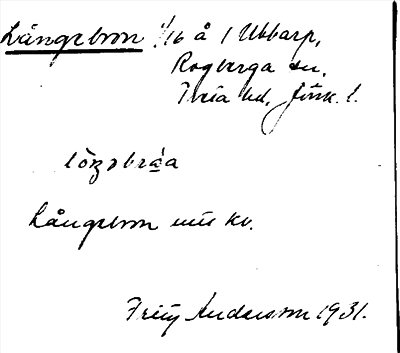 Långebron 1/16 å 1 Ubbarp,
Rogberga sn.
Tveta hd, Jönk. l.
Långebron
Fritz Andersson 1931.